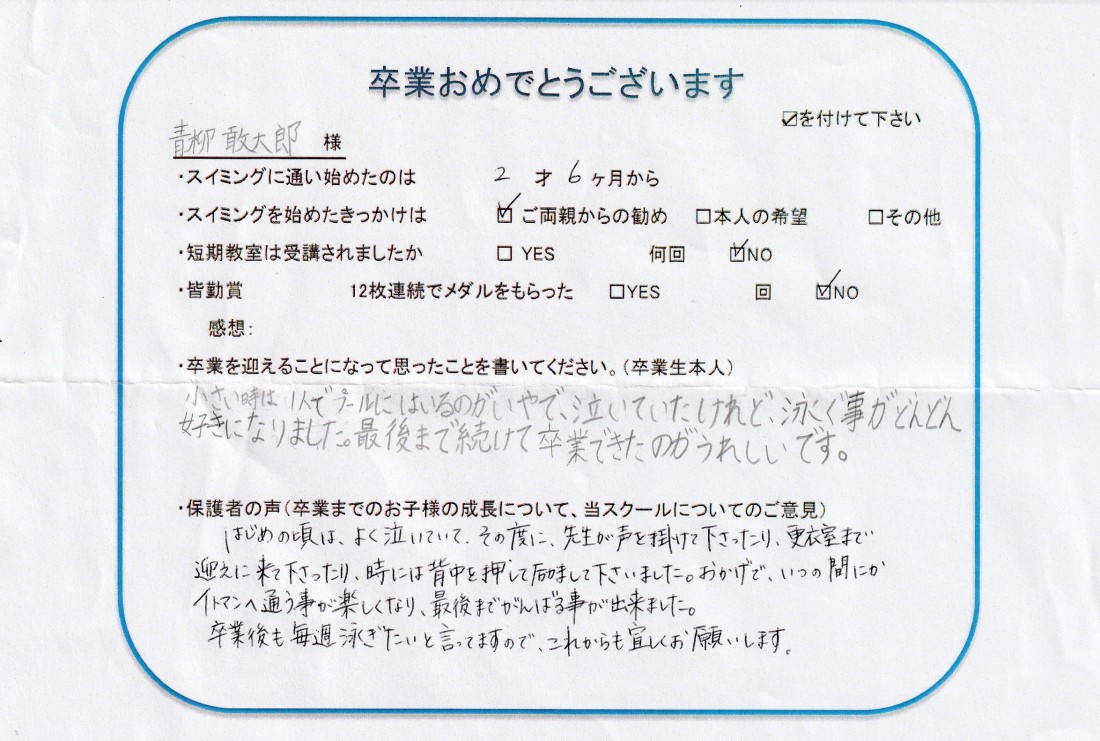 卒業おめでとうございます
☑を付けて下さい
青柳 敢太郎 様
・スイミングに通い始めたのは 2 才 6 ヶ月から
・スイミングを始めたきっかけは ☑ご両親からの勧め □本人の希望 □その他
・短期教室は受講されましたか □ YES 何回 ☑NO
・皆勤賞 12枚連続でメダルをもらった □YES 回 ☑NO
感想:
・卒業を迎えることになって思ったことを書いてください。(卒業生本人)
小さい時は1人でプールにはいるのがいやで、泣いていたけれど、泳ぐ事がどんどん
好きになりました。最後まで続けて卒業できたのがうれしいです。
・保護者の声(卒業までのお子様の成長について、当スクールについてのご意見)
はじめの頃は、よく泣いていて、その度に、先生が声を掛けて下さったり、更衣室まで
迎えに来て下さったり、時には背中を押して励まして下さいました。おかげで、いつの間にか
イトマンへ通う事が楽しくなり、最後までがんばる事が出来ました。
卒業後も毎週泳ぎたいと言ってますので、これからも宜しくお願いします。